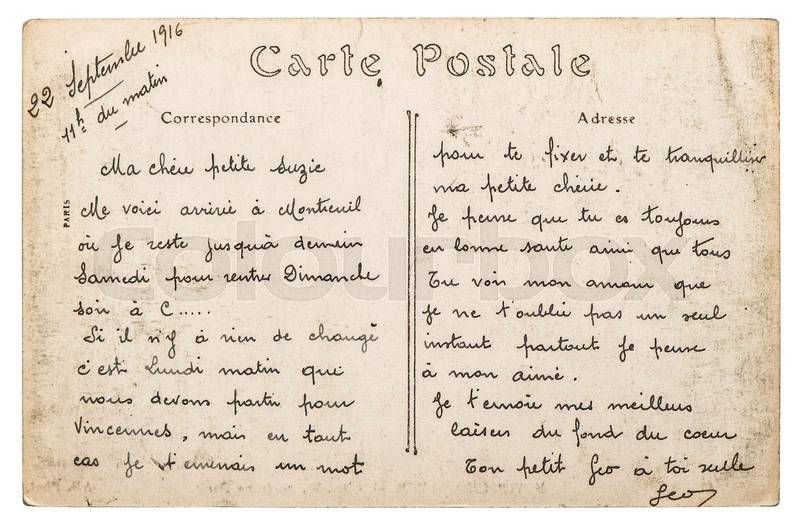 22 Septembre 1916
11h du matin
Carte Postale
Correspondance
Adresse
PARIS
Ma chère petite Suzie
Me voici arrivée à Montreuil
où Je reste Jusqu'à demain
Samedi pour rentrer Dimanche
soir à C.....
Si il n'y à rien de changé
c'est Lundi matin que
nous devons partir pour
Vincennes, mais en tout
cas Je t'enverrais un mot
pour te fixer et te tranquilliser
ma petite chérie.
Je pense que tu es toujours
en bonne santé ainsi que tous
Tu vois mon amour que
Je ne t'oublie pas un seul
instant partout Je pense
à mon aimé.
Je t'envoie mes meilleurs
baisers du fond du coeur
Ton petit Geo à toi seule
Geo
colourbox